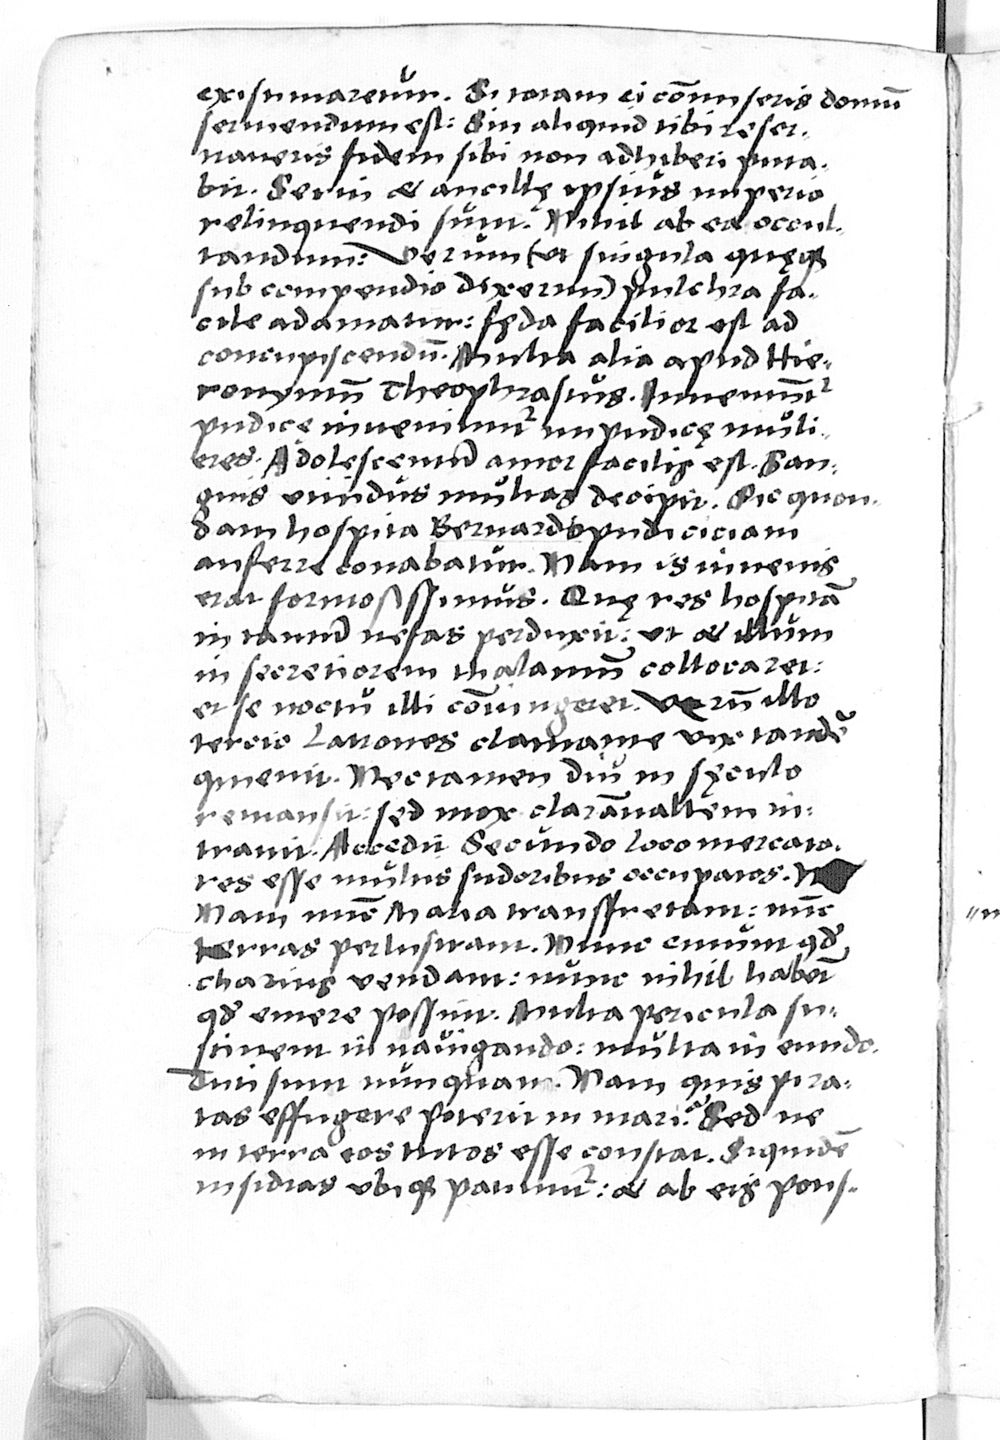 existimaretur. Si totam ei cōmiseris domū
seruiendum est: Sin aliquid tibi reser-
uaueris fidem sibi non adhiberi puta-
bit. Serui & ancillę ipsius imperio
relinquendi sunt. Nihil ab ea occul-
tandum: Verum (ut singula quęqꝫ
sub compendio dixerim) pulchra fa-
cile adamatur: fęda facilior est ad
concupiscendū. Multa alia apud Hie-
ronymū Theophrastus. Inueniūt᷑
pudicę inueniunt᷑ impudicę muli-
eres. Adolescentiū amor facilis est. San-
guis uiuidus multas decipit. Sic quon-
dam hospita Bernardo pudiciciam
auferre conabatur. Nam is iuuenis
erat formosissimus. Quę res hospitā
in tantū nefas perduxit: ut & illum
in secretiorem thalamū collocaret:
et se noctu illi cōiungeret. Verū illo
tercio Latrones clamante uix tandē
quieuit. Nec tamen diu in sęculo
remansit: sed mox clarāuallem in-
trauit. Accedit Secundo loco mercato-
res esse multis sudoribus occupatos.
Nam nūc Maria transffretant: nūc
terras perlustrant. Nunc emunt qđ
charius uendant: nunc nihil habēt
qđ emere possint. Multa pericula su-
stinent in nauigando: multa in eundo.
Tuti sunt nunquam. Nam quis pira-
tas effugere poterit in mari? Sed ne
in terra eos tutos esse constat. Siquidē
insidias ubiqꝫ patiunt᷑: & ab eis pons-